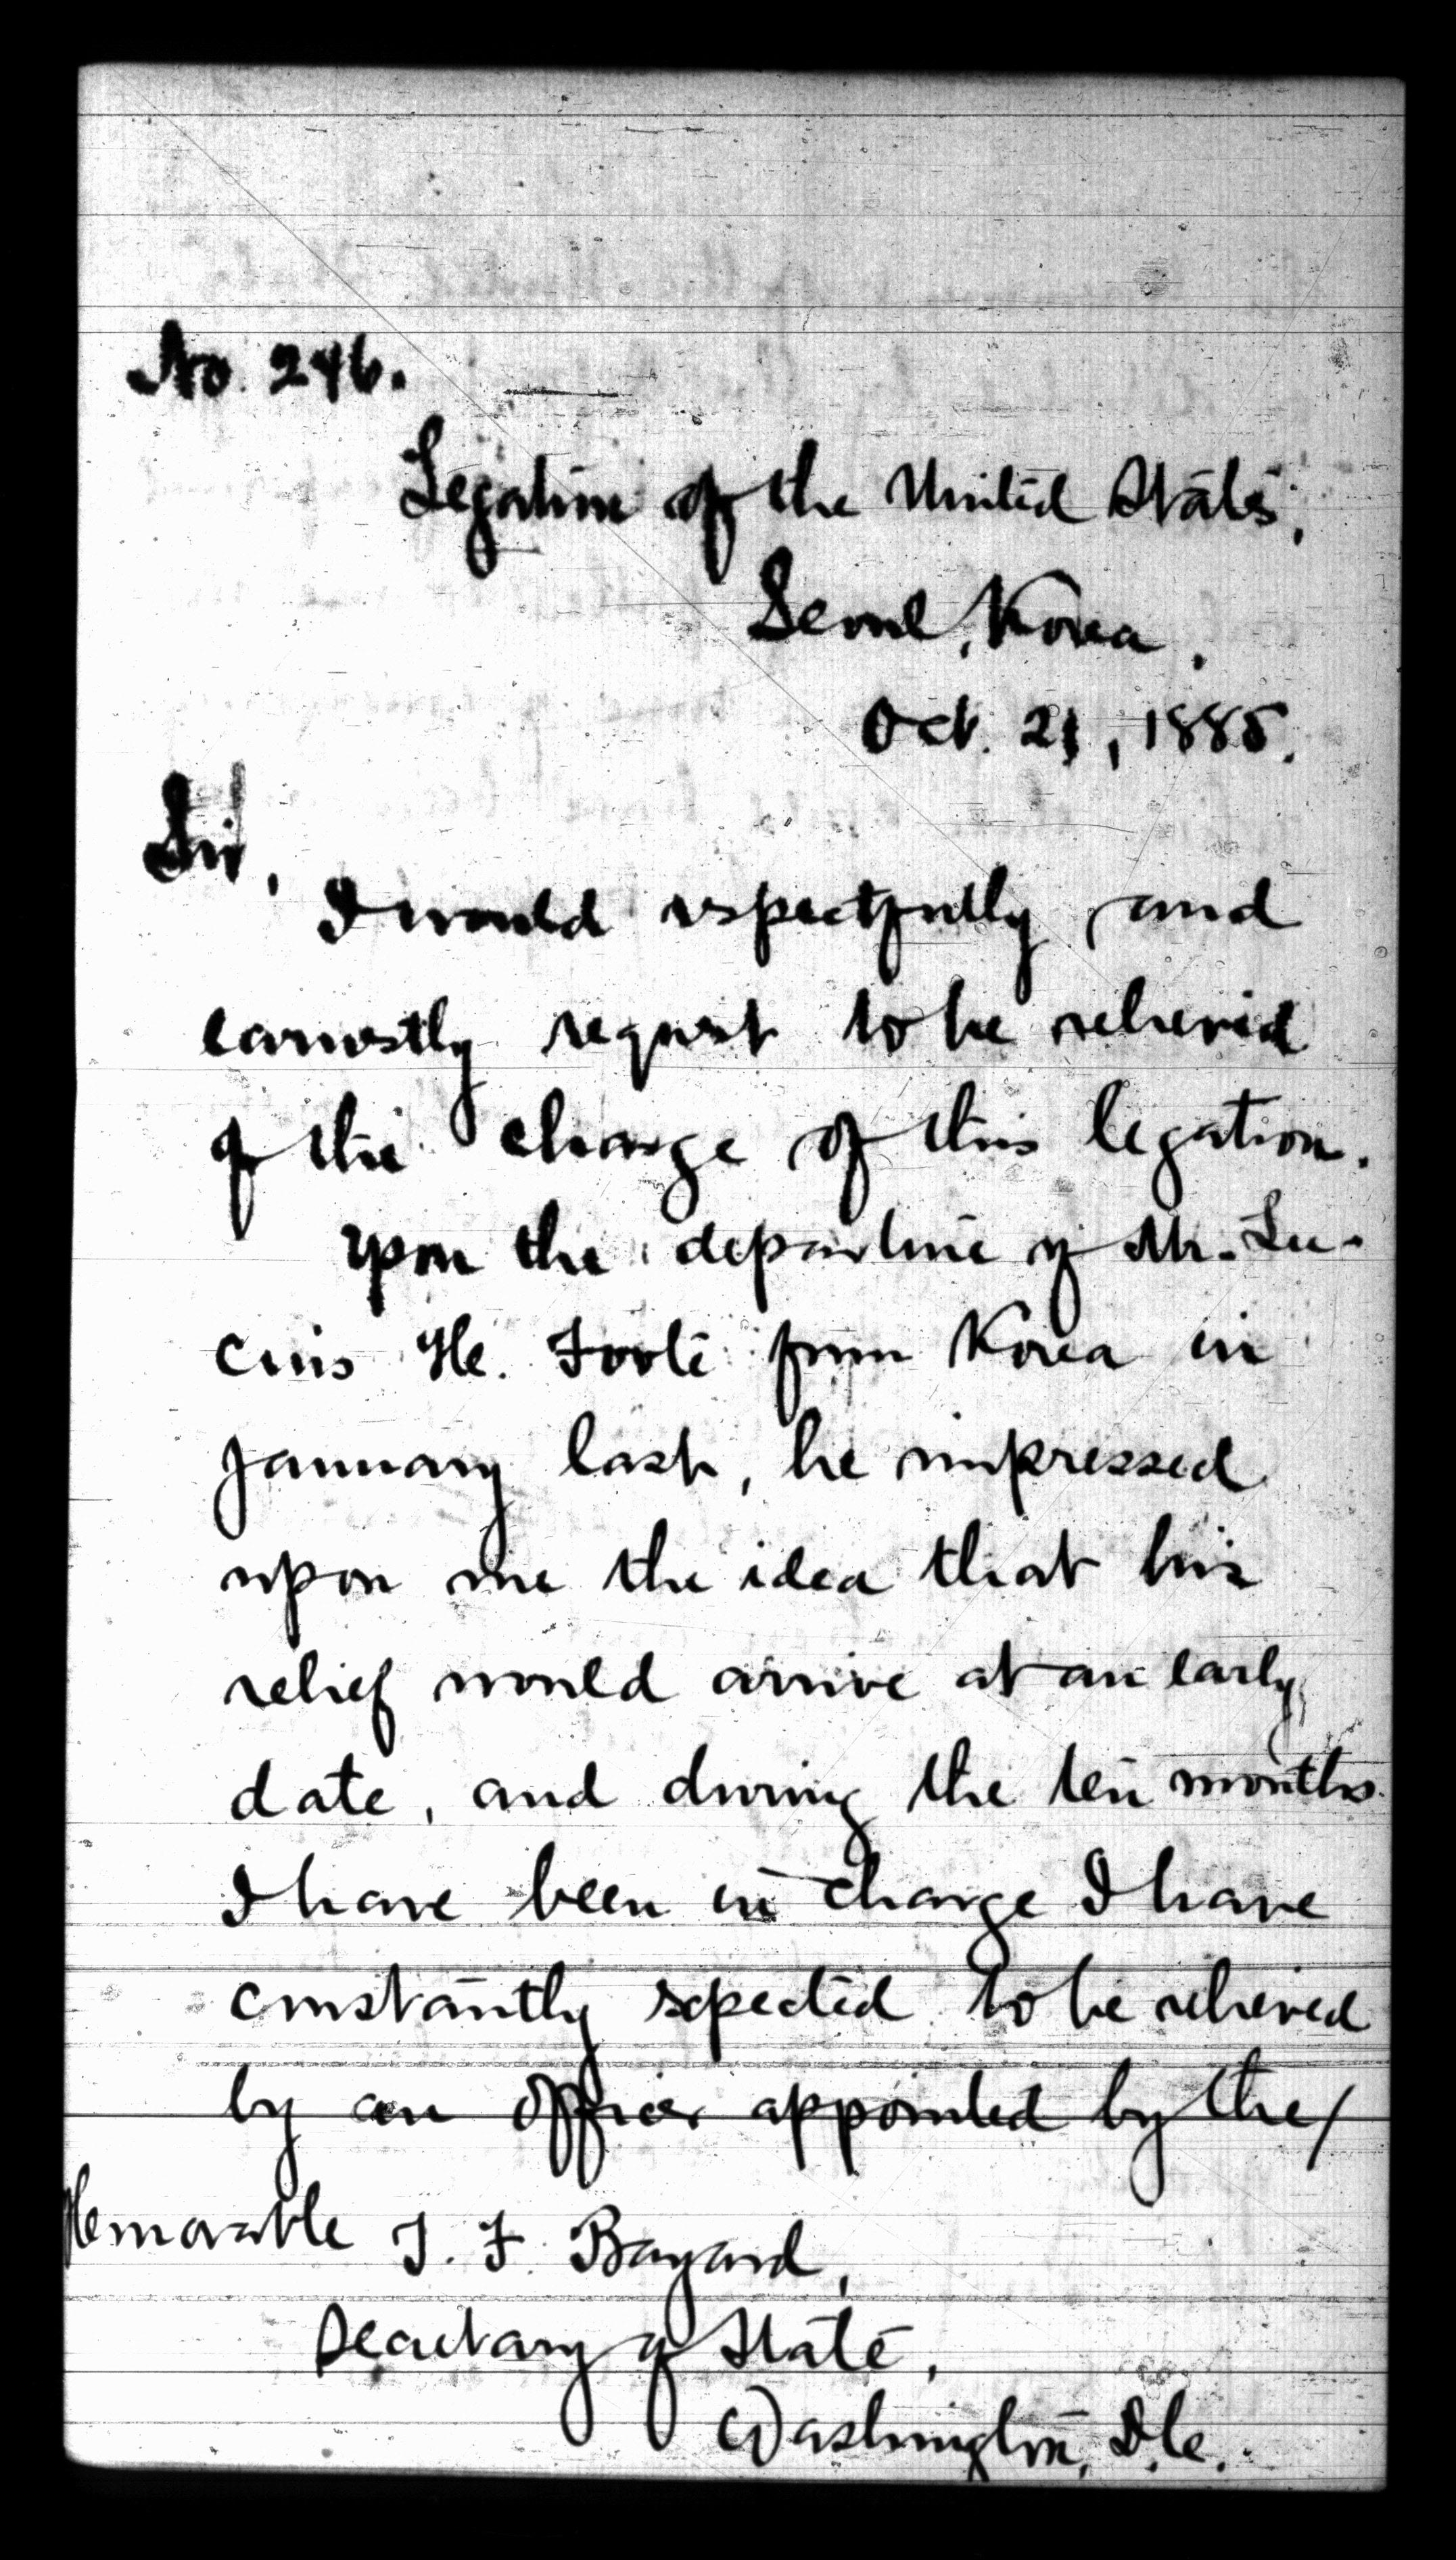 No. 246.
Legation of the United States,
Seoul, Korea.
Oct. 21, 1885.
Sir,
I would respectfully and
earnestly request to be relieved
of the charge of this legation.
Upon the departure of Mr. Lu-
cius H. Foote from Korea in
January last, he impressed
upon me the idea that his
relief would arrive at an early
date, and during the ten months
I have been in charge I have
constantly expected to be relieved
by an officer appointed by the/
Honorable T. F. Bayard,
Secretary of State,
Washington, D.C.